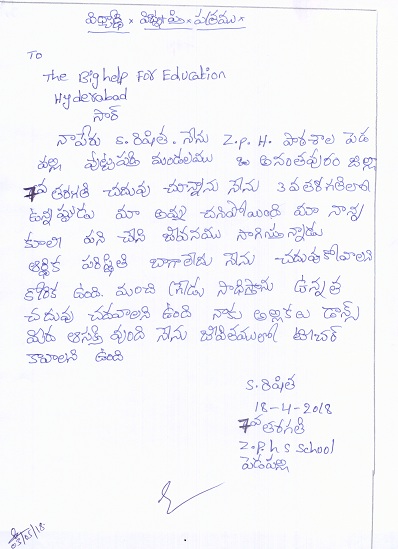 విద్యార్థి * విజ్ఞప్తి * పత్రము *
TO
The Big help For Education
Hyderabad
సార్
నాపేరు S. రిషిత. నేను Z.P.H. పాఠశాల పెడ
పల్లి పుట్టపర్తి మండలము అనంతపురం జిల్లా
7వ తరగతి చదువు చున్నాను నేను 3వ తరగతిలో
ఉన్నప్పుడు మా అమ్మ చనిపోయింది మా నాన్న
కూలి పని చేసి జీవనము సాగిస్తున్నాడు
ఆర్థిక పరిస్థితి బాగాలేదు నేను చదువుకోవాలని
కోరిక ఉంది. మంచి గ్రేడు సాధిస్తాను ఉన్నత
చదువు చదవాలని ఉంది నాకు అల్లికలు డాన్స్
మీద ఆసక్తి వుంది నేను జీవితములో టీచర్
కావాలని ఉంది
S. రిషిత
18-4-2018
7వ తరగతి
Z.P.H S School
పెడపల్లి
03/05/18